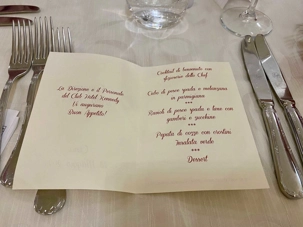 La Direzione e il Personale
del Club Hotel Kennedy
Vi augurano
Buon Appetito!
Cocktail di benvenuto con
sfizioserie dello Chef
***
di pesce spada e melanzana
in parmigiana
***
di pesce spada e lana con
gamberi e zucchine
***
Pepata di cozze con crostini
Insalata verde
***
Dessert